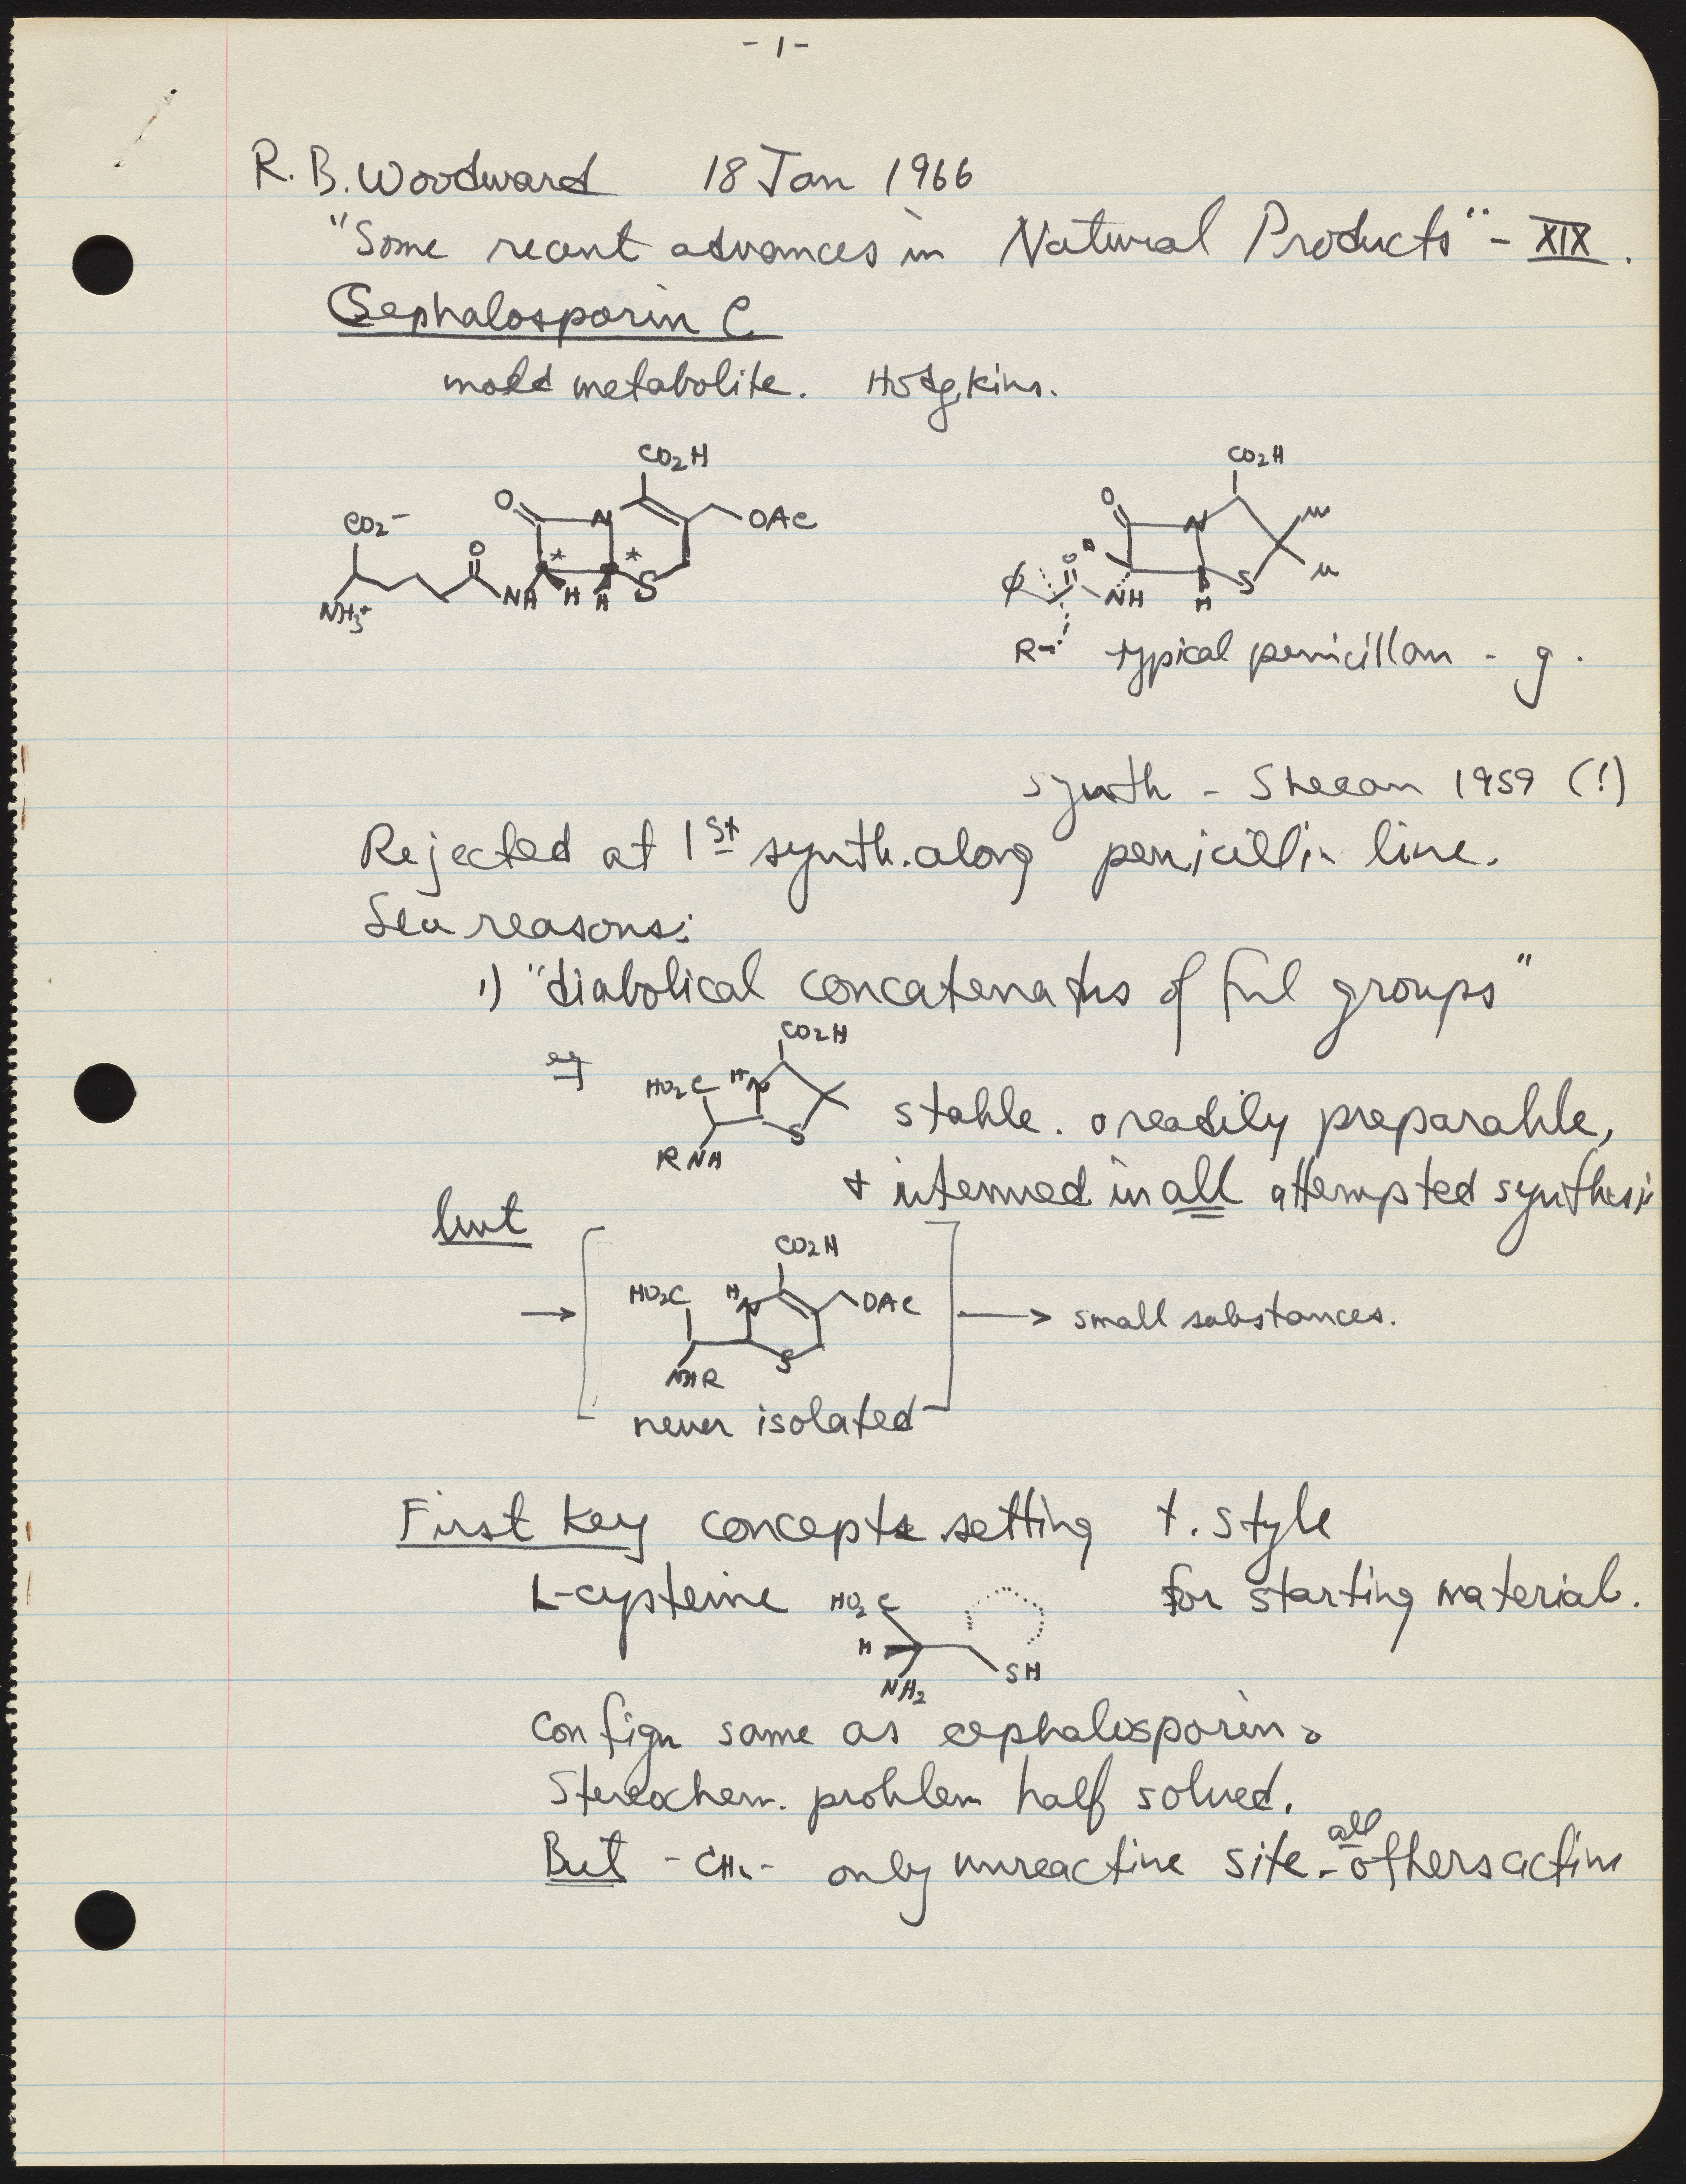 - 1 -
R. B. Woodward 18 Jan 1966
"Some recent advances in Natural Products" - XIX.
Cephalosporin C
mold metabolite. Hodgkins.
CO2H CO2H
O N OAc O N me
CO2- * * H me
O S ø O S
NH3+ NH H H NH H
R- typical penicillan - g.
synth - Sheean 1959 (!)
Rejected at 1st synth. along penicillin line.
reasons:
1) "diabolical concatenatns of fnl groups"
CO2H
eg HO2C H N
S stable. readily preparable,
RNH
+ intermed in all attempted synthesis
but
CO2H
HO2C H N OAc → small substances.
S
NHR
never isolated
First key concepts setting t. style
L-cysteine HO2C for starting material.
H
NH2 SH
Confign same as cephalosporin.
Stereochem. problem half solved.
all
But -CH2- only unreactive site - others active